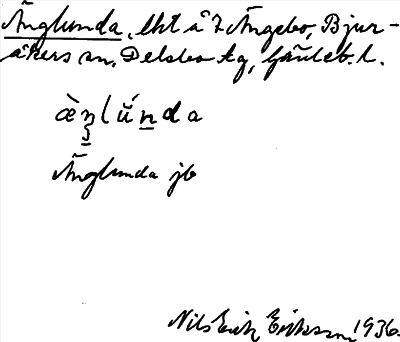 Änglunda, lht å 7 Ängebo, Bjur-
åkers sn, Delsbo tg, Gävleb. l.
ä̀ŋlúnda
Änglunda jb
Nils Erik Eriksson 1936.